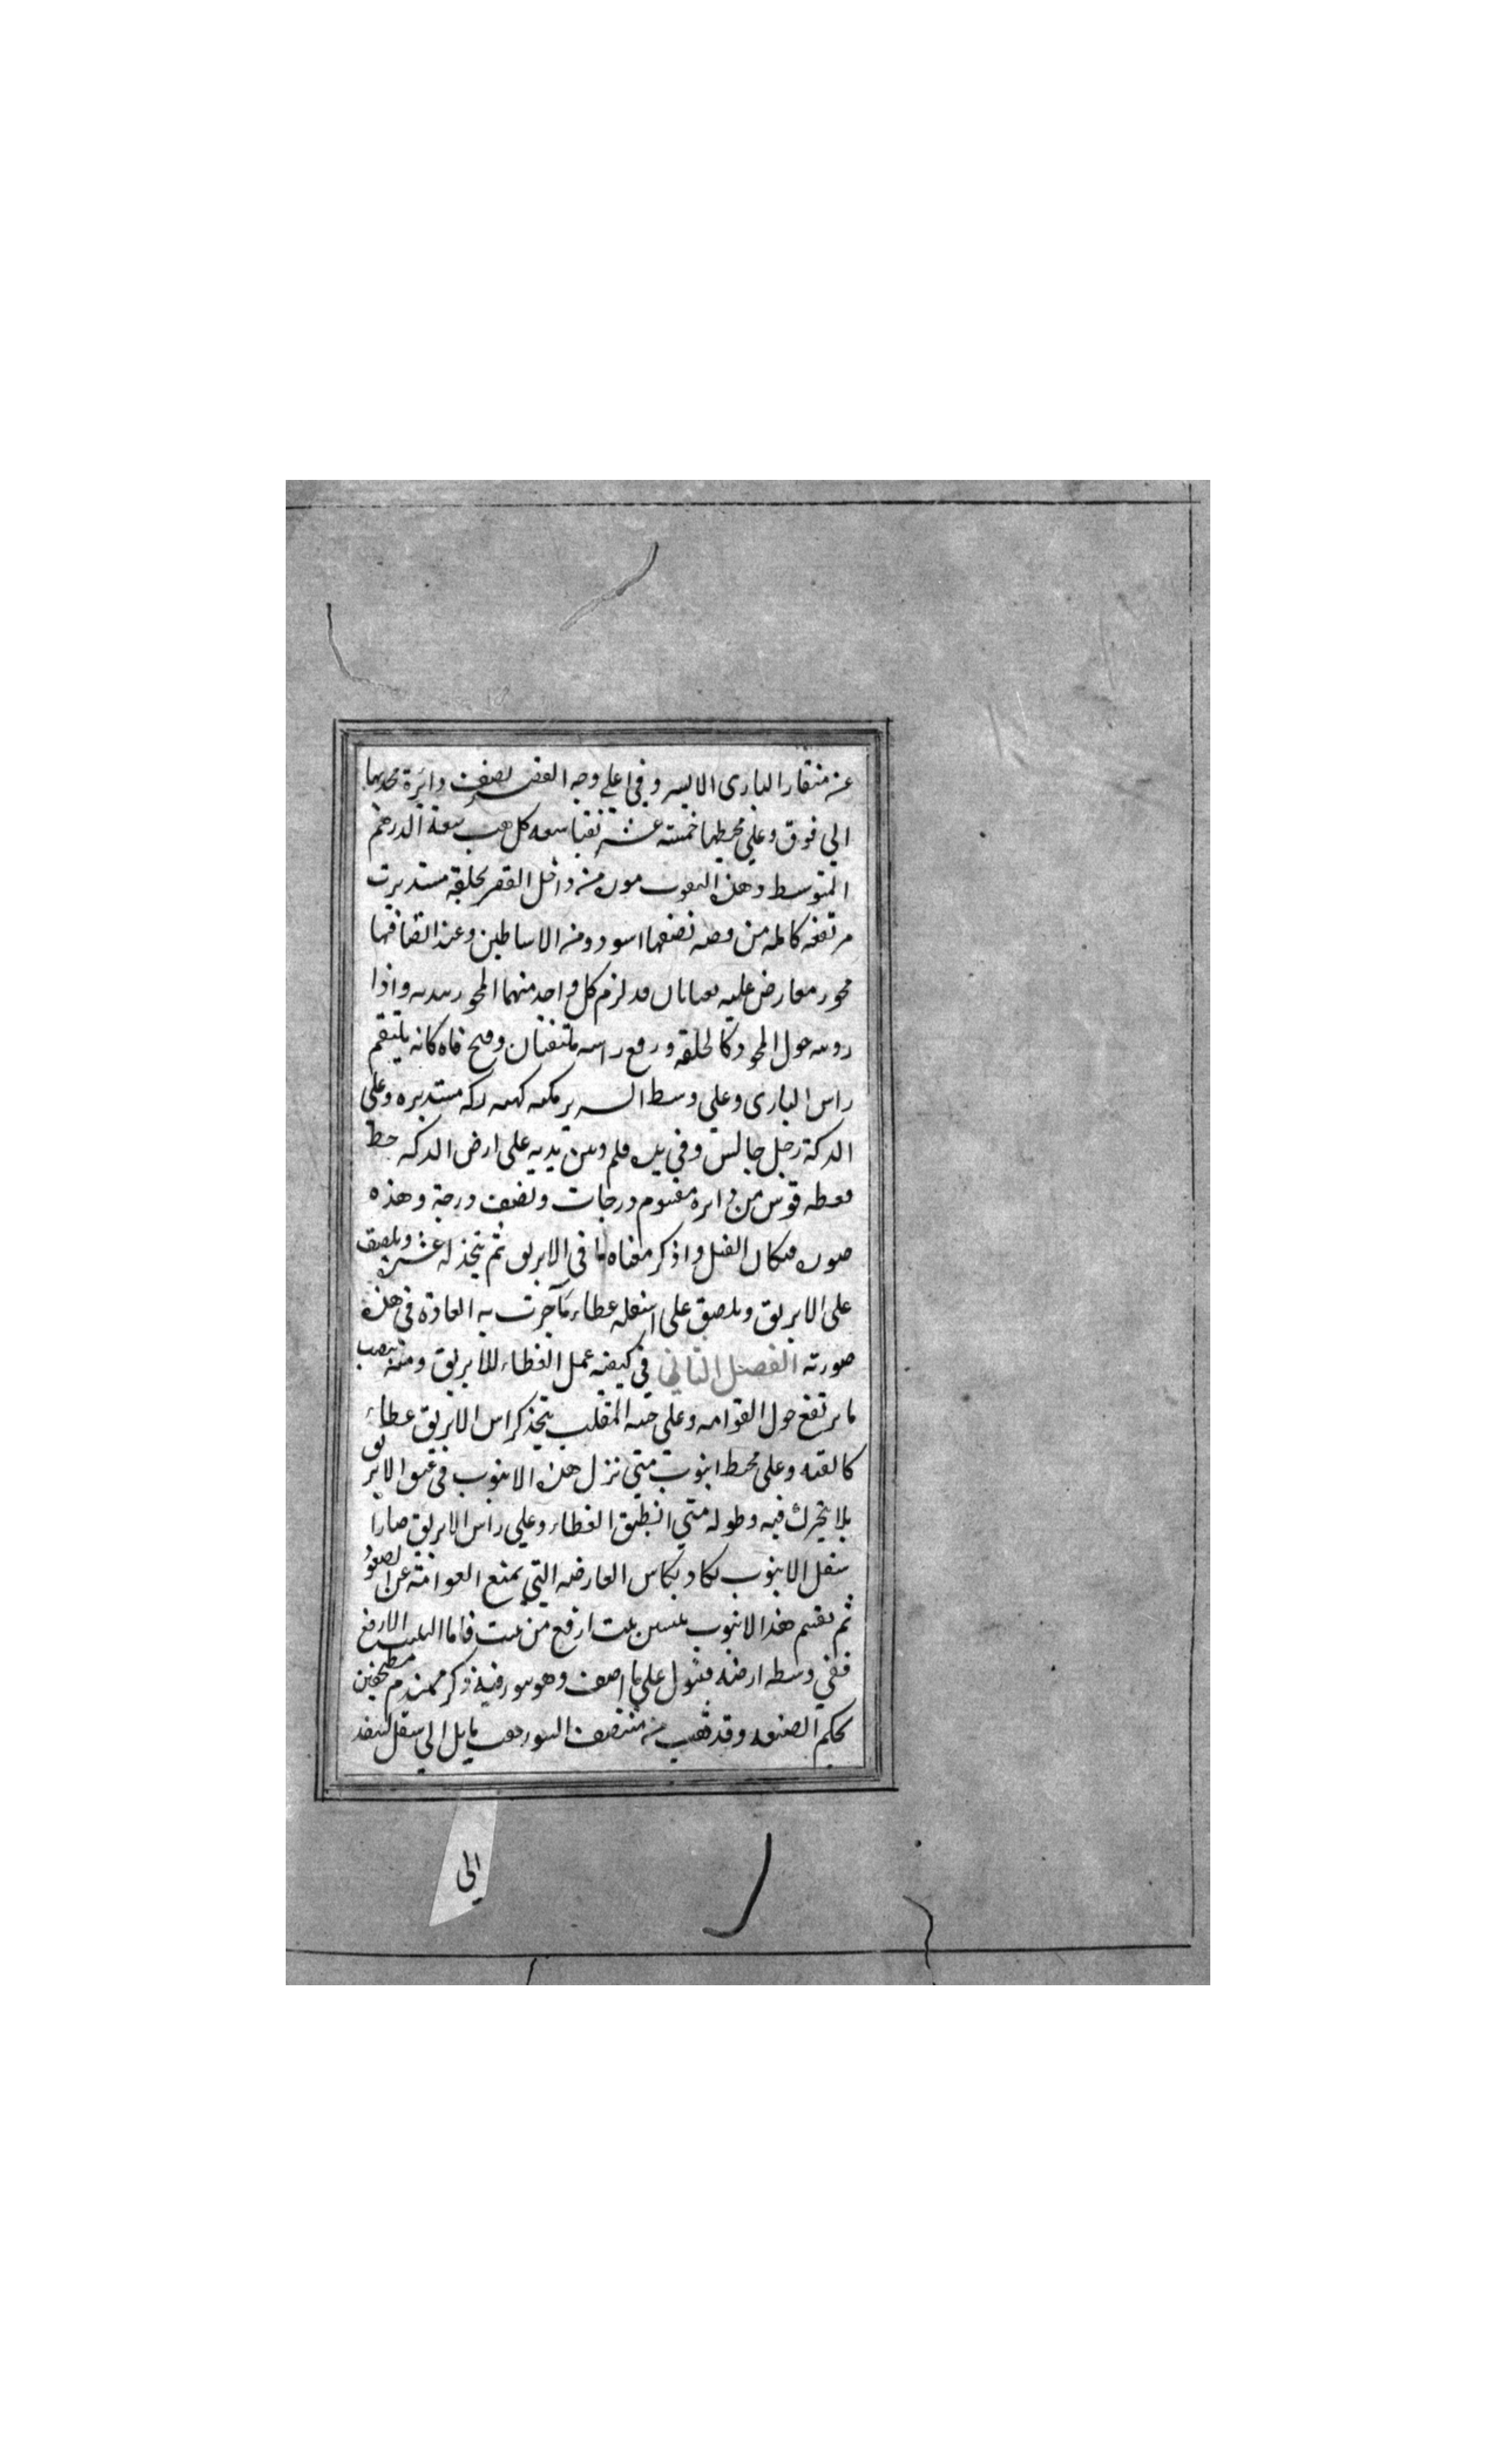 عن منقار البازى الايسر وفي اعلي وجه القصر نصف دائرة محدبها
الي فوق وعلي محيطها خمسة عشر ثقبا سعه كل ثقب سعة الدرهم
المتوسط وهذه الثقوب من داخل القصر بحلقة مستديرة
مرتفعه كامله من فضه نصفها اسود ومن الاساطين وعند انصافها
محور معارض عليه ثعبانان قد لزم كل واحد منهما المحور بيديه واذا
دوسه حول المحور كالحلقة ورفع راسه ملتفتان وفتح فاه كانه يلتقم
راس البازى وعلي وسط السرير مكعبه كهيه دكه مستديره وعلي
الدكة رجل جالس وفي يده قلم وبين يديه علي ارض الدكه خط
قوس من دايرة مقسوم درجات ونصف درجة وهذه
صوره الفيل واذكر معناه ما في الابريق ثم يتخذ له ويلصق
علي الابريق ويلصق علي اسفله غطاء كما جرت به العادة في هذه
صورته الفصل الثاني في كيفيه عمل الغطاء للابريق ومنه تنصب
ما يرتفع حول القوامه وعلي جنبه المقلب يتخذ كراس الابريق غطاء
كالقبه وعلي محيط انبوب متي نزل هذه الانبوب في عنق الابريق
بلا يتحرك فيه وطوله متي انطبق الغطاء وعلي راس الابريق صارا
سفل الانبوب يكاد يماس العارضه التي تمنع العوامة عن الصعود
ثم يقسم هذا الانبوب بيتين بيت ارفع من بيت فاما البيت الارفع
ففي وسطه ارضه علي ما اصف وهو مهندم مطحونين
محكم الصنعه وقد ثقب من منتصف ثقب مايل الي سفل لينفد
الي